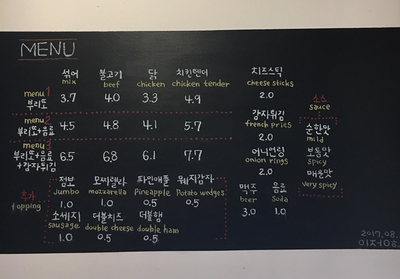 MENU
섞어 불고기 닭 치킨텐더 치즈스틱
mix beef chicken chicken tender cheese sticks
menu 1 부리또 3.7 4.0 3.3 4.9 2.0
소스
sauce
감자튀김
french fries
2.0
menu 2 부리또+음료 4.5 4.8 4.1 5.7
순한맛
mild
어니언링
onion rings
2.0
보통맛
spicy
menu 3 부리또+음료+감자튀김 6.5 6.8 6.1 7.7
매운맛
very spicy
추가
topping
점보 모짜렐라 파인애플 웨지감자
Jumbo mozzarella Pineapple Potato wedges
1.0 1.0 0.5 0.5
맥주 음료
beer Soda
3.0 1.0
소세지 더블치즈 더블햄
sausage double cheese double ham
1.0 0.5 0.5
2017.08.